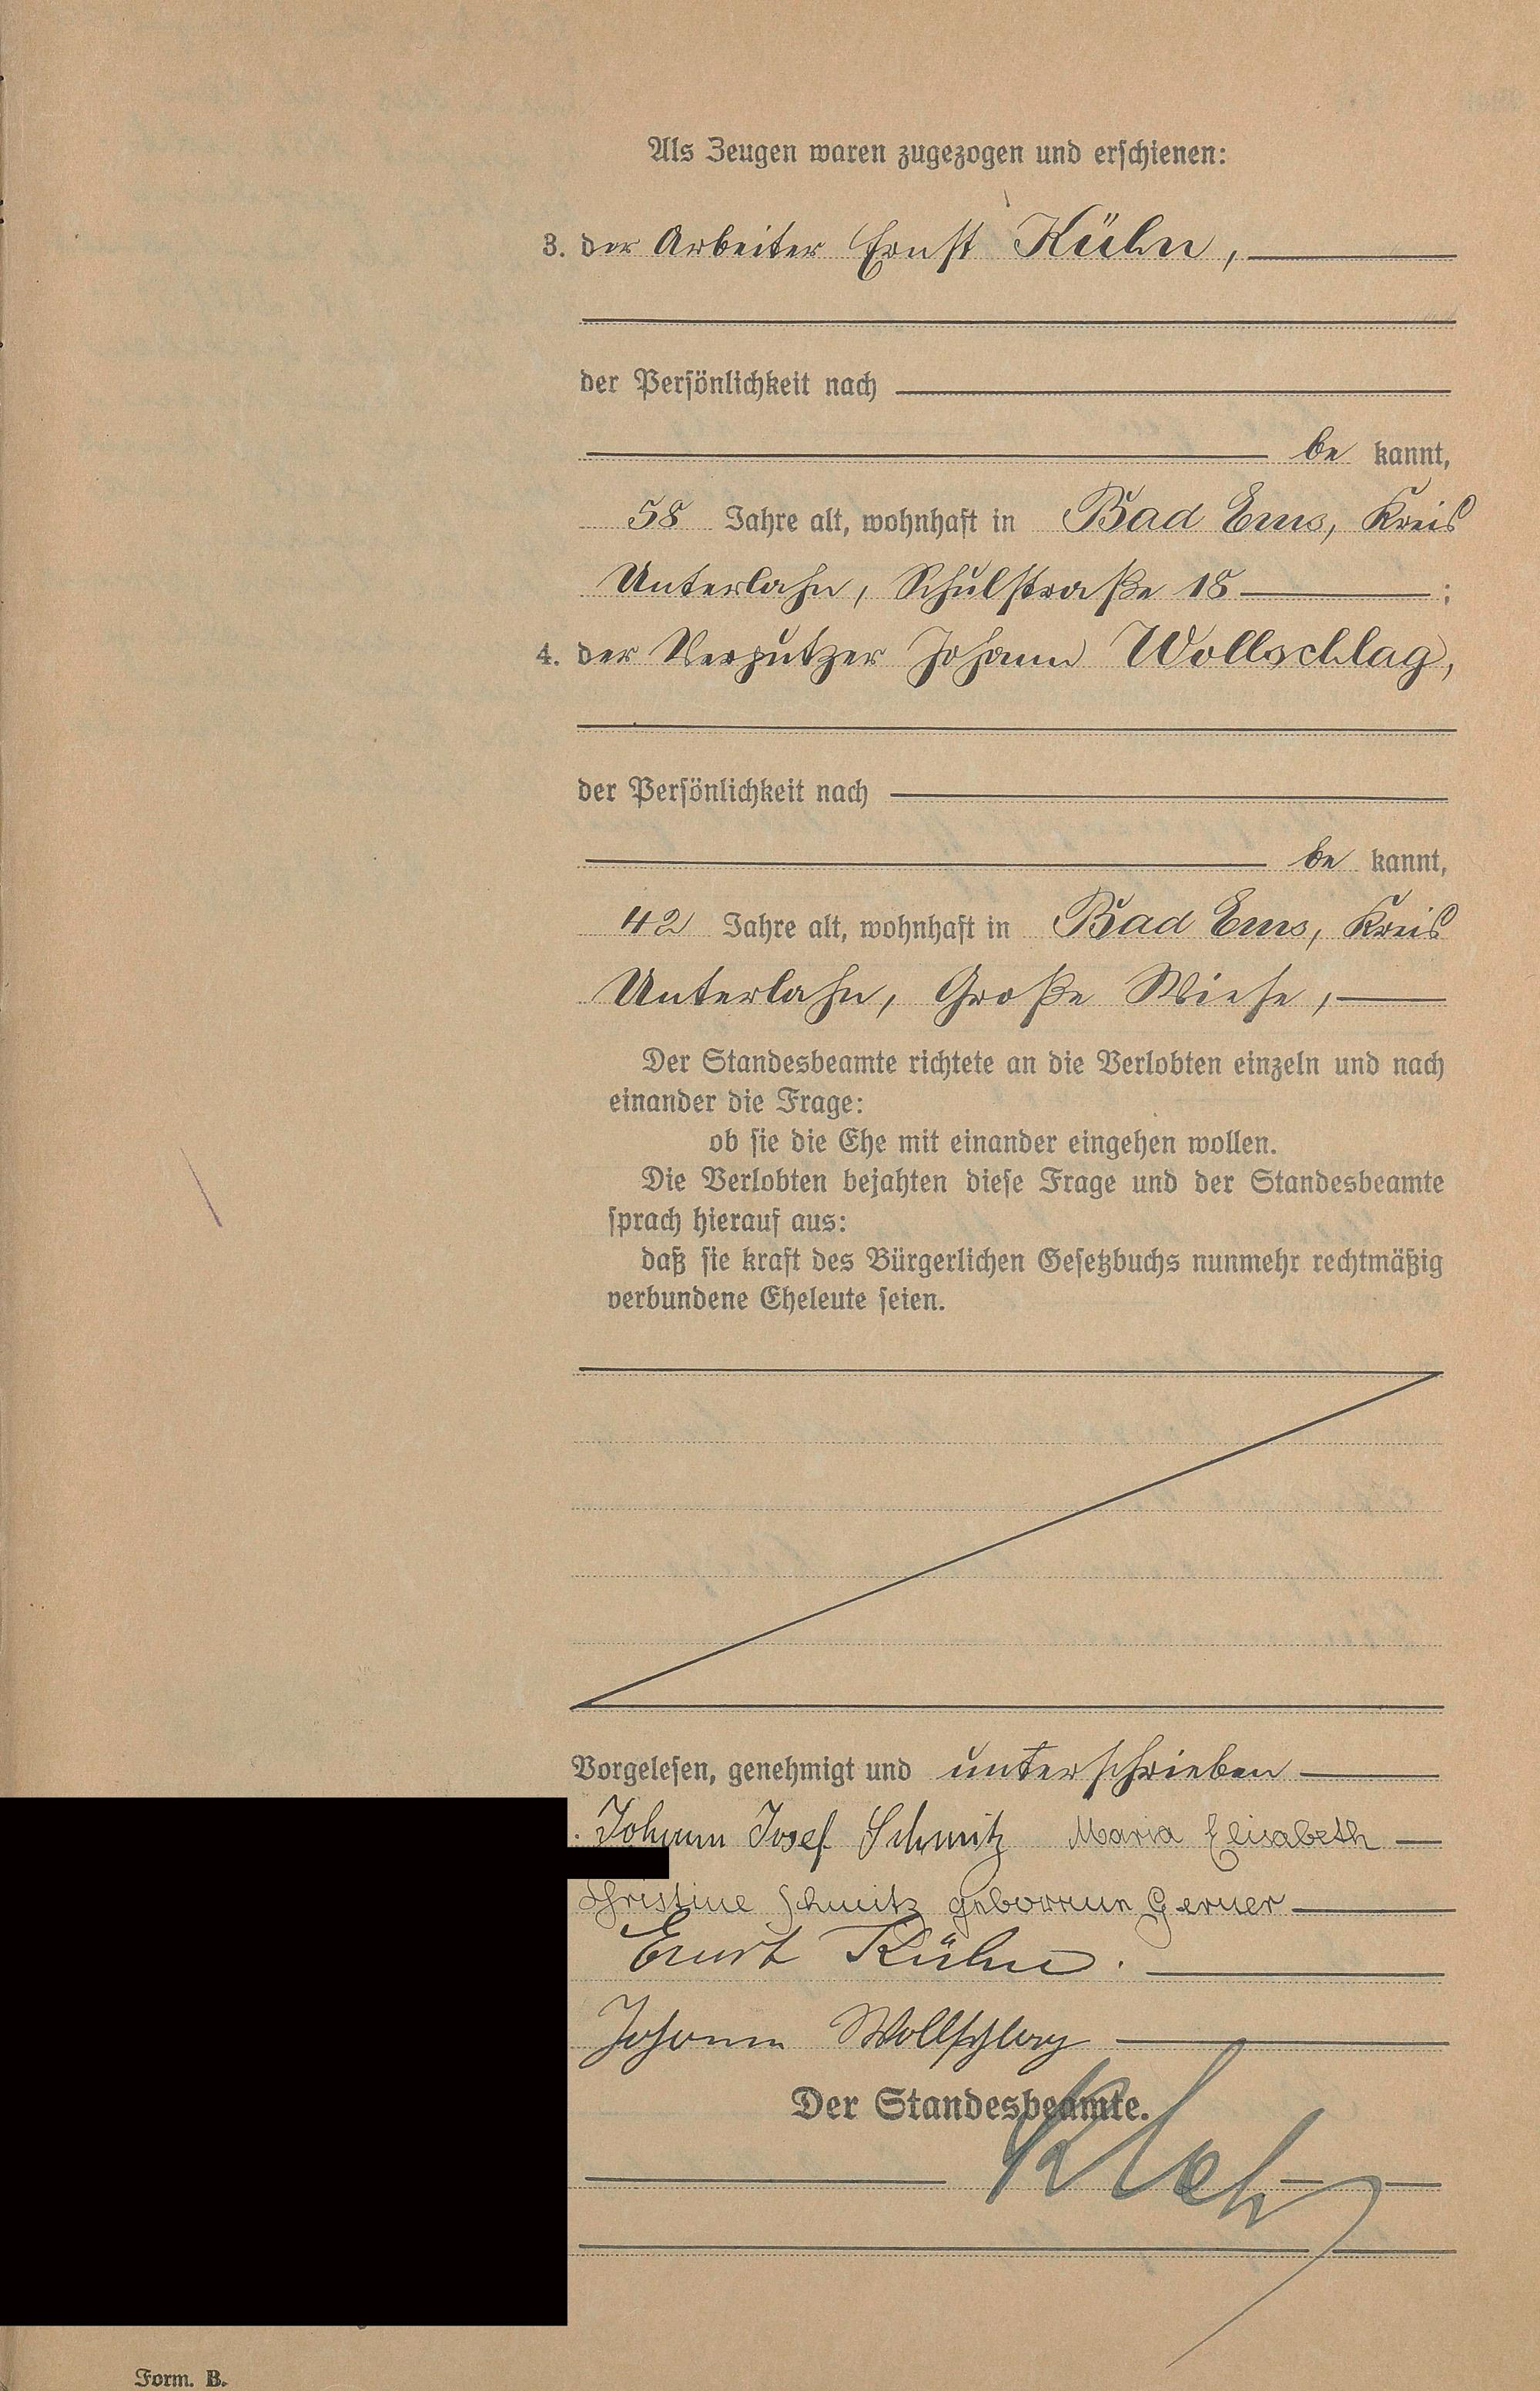 Als Zeugen waren zugezogen und erschienen:
3. der Arbeiter Ernst Kühn,
der Persönlichkeit nach
be kannt,
58 Jahre alt, wohnhaft in Bad Ems, Kreis
Unterlahn, Schulstraße 18 ;
4. der Verputzer Johann Wollschlag,
der Persönlichkeit nach
be kannt,
42 Jahre alt, wohnhaft in Bad Ems, Kreis
Unterlahn, Große Wiese,
Der Standesbeamte richtete an die Verlobten einzeln und nach
einander die Frage:
ob sie die Ehe mit einander eingehen wollen.
Die Verlobten bejahten diese Frage und der Standesbeamte
sprach hierauf aus:
daß sie kraft des Bürgerlichen Gesetzbuchs nunmehr rechtmäßig
verbundene Eheleute seien.
Vorgelesen, genehmigt und unterschrieben
Johann Josef Schmitz Maria Elisabeth
Christine Schmitz geborene Gerner
Ernst Kühn.
Johann Wollschlag
Der Standesbeamte.
Form. B.